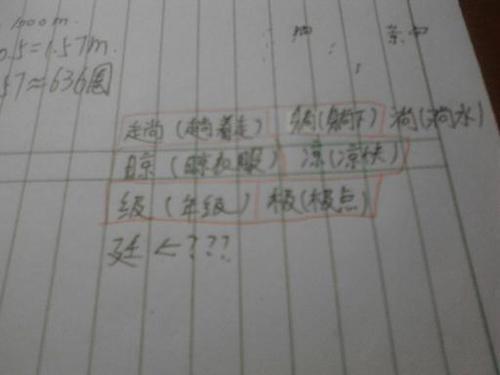 1000m.
0.5=1.57m.
57≈636圈
趟(趟着走) 躺(躺下) 淌(淌水)
晾(晾衣服) 凉(凉快)
级(年级) 极(极点)
廷<???